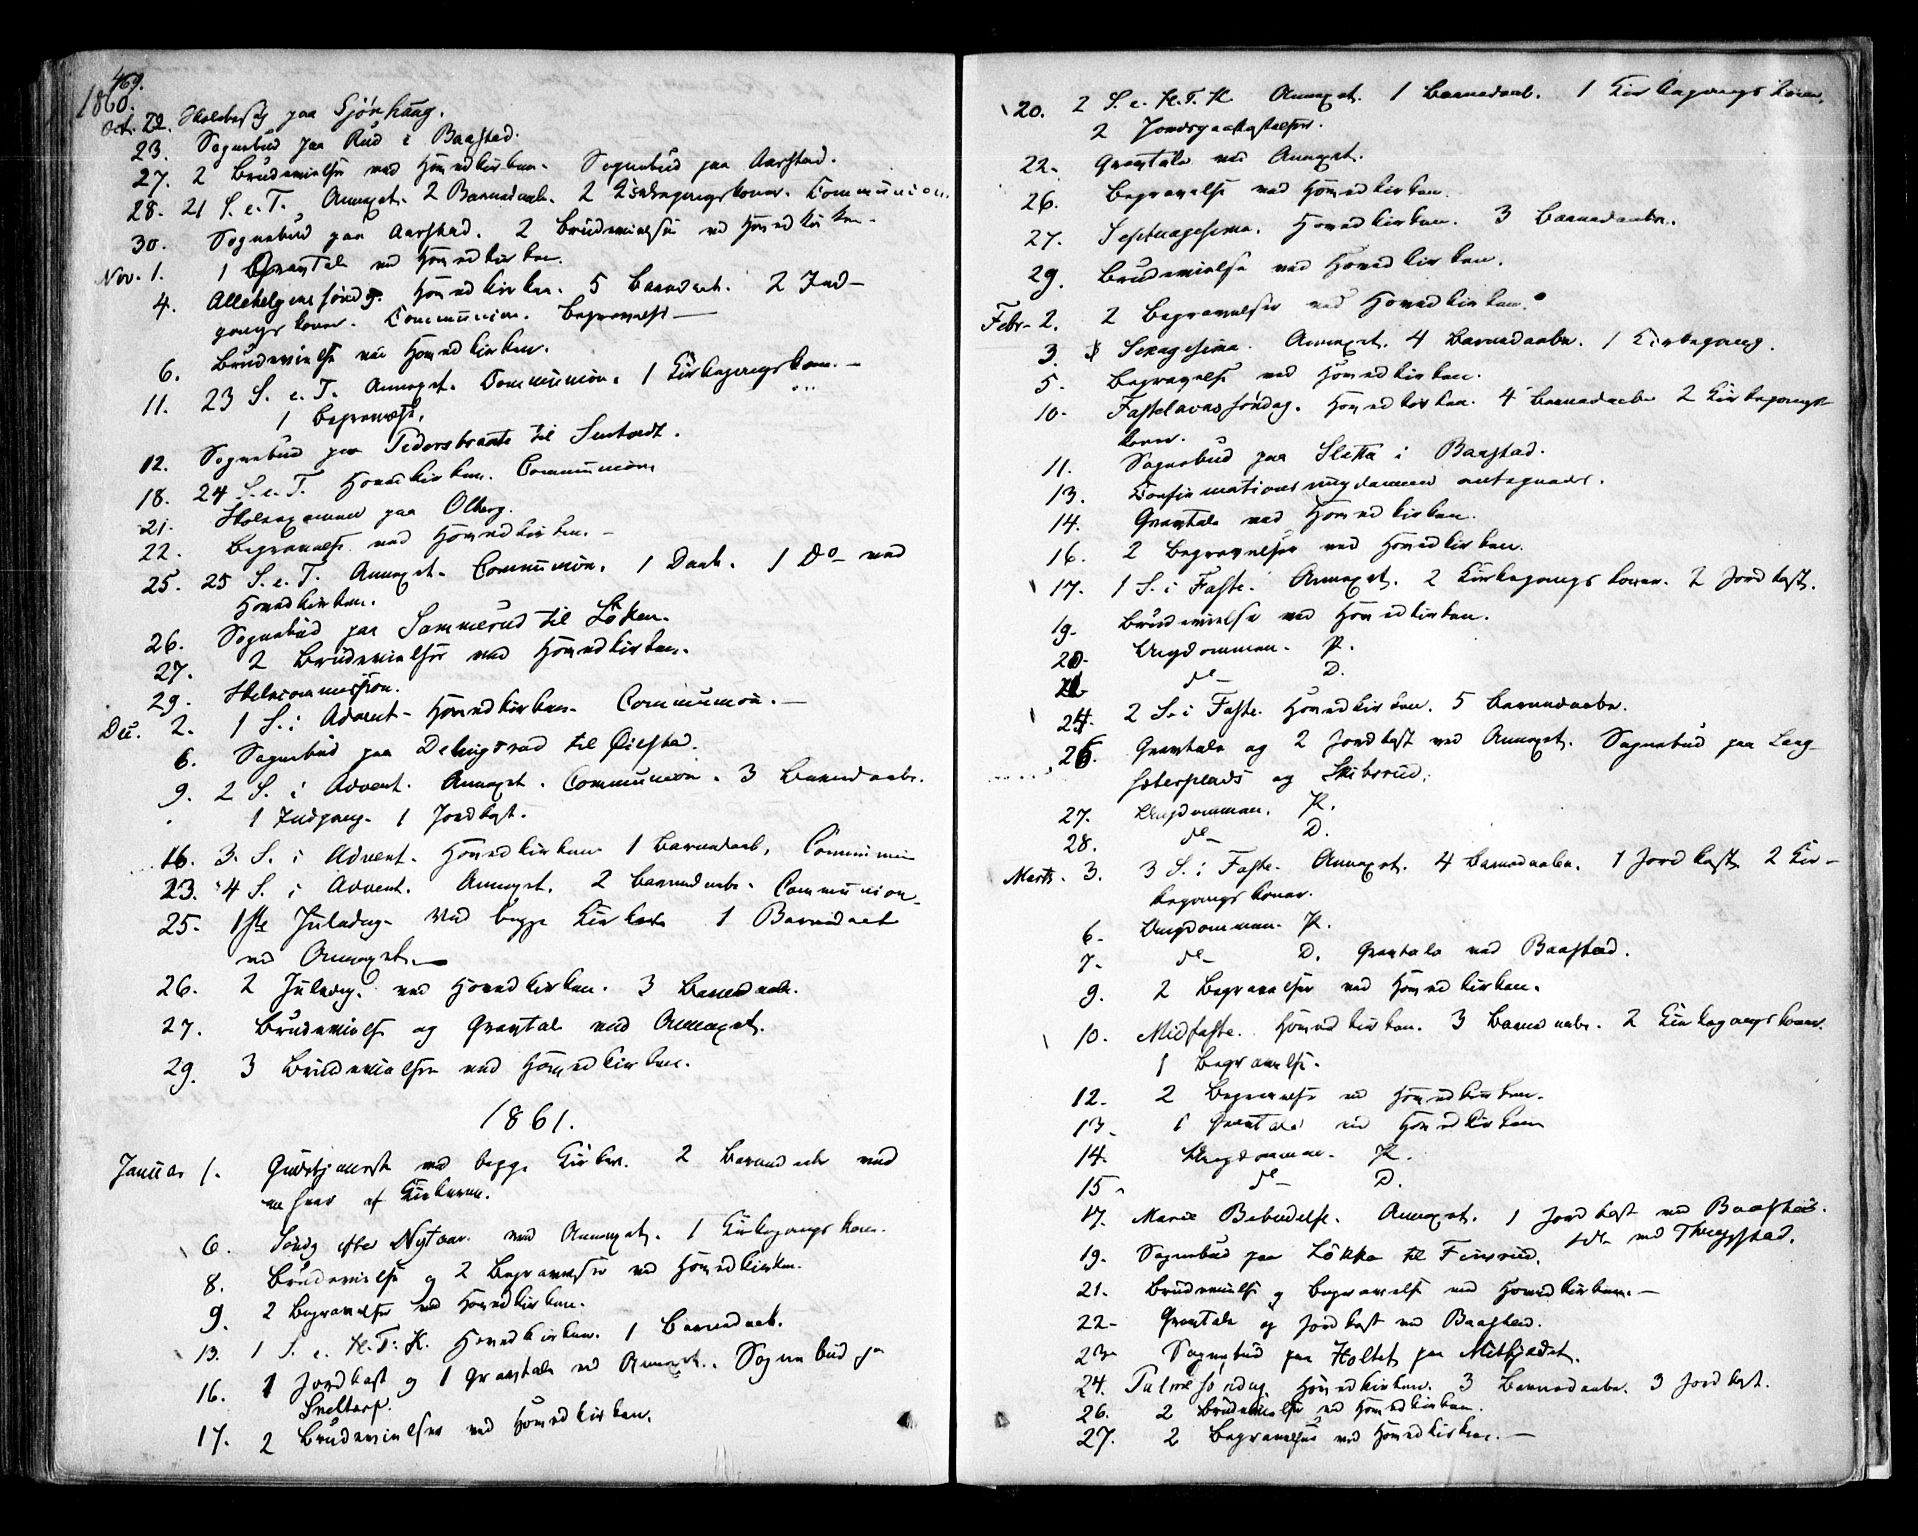 469.
1860.
Oct. 22. Skolebesøg paa Gjørhaug.
23. Sognebud paa Rud i Baastad.
27. 2 Brudevielse ved Hovedkirken. Sognebud paa Aarstad.
28. 21 S. e. T. Annexet. 2 Barnedaab. 2 Kirkegangskoner. Communion.
30. Sognebud paa Aarstad. 2 Brudevielser ved Hovedkirken.
Nov. 1. 1 Gravtale ved Hovedkirken.
4. Allehelgenssøndg. Hovedkirken. 5 Barnedaab. 2 Ind-
gangskoner. Communion. Begravelse —
6. Brudevielse ved Hovedkirken.
11. 23 S. e. T. Annexet. Communion. 1 Kirkegangskone. —
1 Begravelse.
12. Sognebud paa Pedersbraate til
18. 24 S. e. T. Hovedkirken. Communion
21. Skoleexamen paa Olberg.
22. Begravelse ved Hovedkirken. —
25. 25 S. e. T. Annexet. Communion. 1 Daab. 1 Do ved
Hovedkirken.
26. Sognebud paa Sammerud til Löken.
27. 2 Brudevielser ved Hovedkirken.
29. Skolecommission.
Dec. 2. 1 S. i Advent. Hovedkirken. Communion. —
6. Sognebud paa Delingsrud til Øiestad.
9. 2 S. i Advent. Annexet. Communion. 3 Barnedaabe.
1 Indgang. 1 Jordkast.
16. 3. S. i Advent. Hovedkirken 1 Barnedaab. Communion
23. 4 S. i Advent. Annexet. 2 Barnedaabe. Communion.
25. 1ste Juledag. Ved begge Kirker 1 Barnedaab
ved Annexet. —
26. 2 Juledag. ved Hovedkirken. 3 Barnedaabe.
27. Brudevielse og Gravtale ved Annexet.
29. 3 Brudevielser ved Hovedkirken.
1861.
Januar 1. Gudstjeneste ved begge Kirker. 2 Barnedaabe ved
en hver af Kirkerne.
6. Søndg efter Nytaar. ved Annexet. 1 Kirkegangskone.
8. Brudevielse og 2 Begravelser ved Hovedkirken.
9. 2 Begravelser ved Hovedkirken.
13. 1 S. e. H. T. K. Hovedkirken. 1 Barnedaab.
16. 1 Jordkast og 1 Gravtale ved Annexet. Sognebud pa
Sneltorp.
17. 2 Brudevielser ved Hovedkirken.
20. 2 S. e. H. T. K. Annexet. 1 Barnedaab. 1 Kirkegangskone.
2 Jordspaakastelser.
22. Gravtale ved Annexet.
26. Begravelse ved Hovedkirken.
27. Septuagesima. Hovedkirken. 3 Barnedaabe.
29. Brudevielse ved Hovedkirken.
Febr. 2. 2 Begravelser ved Hovedkirken.
3. Sexagesima. Annexet. 4 Barnedaabe. 1 Kirkegang.
5. Begravelse ved Hovedkirken.
10. Fastelavnssöndag. Hovedkirken. 4 Barnedaabe 2 Kirkegangs-
koner.
11. Sognebud paa Sletta i Baastad.
13. Confirmationsungdommen antegnedes.
14. Gravtale ved Hovedkirken.
16. 2 Begravelser ved Hovedkirken.
17. 1 S. i Faste. Annexet. 2 Kirkegangskoner. 2 Jordkast.
19. Brudevielse ved Hovedkirken.
20. Ungdommen. P.
21. do — D.
24. 2 S. i Faste. Hovedkirken. 5 Barnedaabe.
26. Gravtale og 2 Jordkast ved Annexet. Sognebud paa Lang-
sæterplads og Skibsrud.
27. Ungdommen. P.
28. do — D.
Marts. 3. 3 S. i Faste. Annexet. 4 Barnedaabe. 1 Jordkast. 2 Kir-
kegangskoner.
6. Ungdommen. P.
7. do — D. Gravtale ved Baastad.
9. 2 Begravelser ved Hovedkirken.
10. Midfaste. Hovedkirken. 3 Barnedaabe. 2 Kirkegangskoner.
1 Begravelse.
12. 2 Begravelse ved Hovedkirken.
13. 1 Gravtale ved Hovedkirken
14. Ungdommen. P.
15. do — D.
17. Mariæ Bebudelse. Annexet. 1 Jordkast ved Baastad.
1 do ved Thrygstad.
19. Sognebud paa Lökka til Finsrud.
21. Brudevielse og Begravelse ved Hovedkirken. —
22. Gravtale og Jordkast ved Baastad.
23. Sognebud paa Holtet paa
24. Palmesöndag. Hovedkirken. 3 Barnedaabe. 3 Jordkast.
26. 2 Brudevielser ved Hovedkirken.
27. 2 Begravelser ved Hovedkirken. —